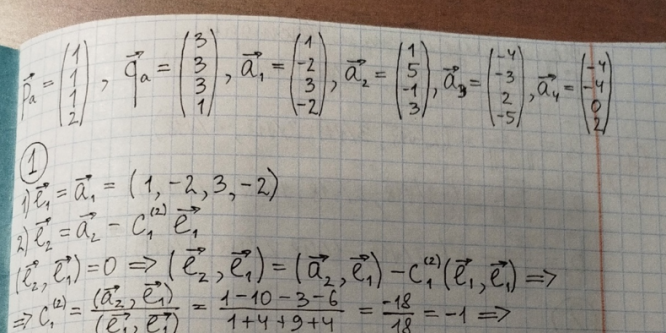 p⃗ₐ = (1 1 1 2), q⃗ₐ = (3 3 3 1), a⃗₁ = (1 -2 3 -2), a⃗₂ = (1 5 -1 3), a⃗₃ = (-4 -3 2 -5), a⃗₄ = (-4 -4 0 2)
1
1) e⃗₁ = a⃗₁ = (1, -2, 3, -2)
2) e⃗₂ = a⃗₂ - c₁⁽²⁾ e⃗₁
(e⃗₂, e⃗₁) = 0 => (e⃗₂, e⃗₁) = (a⃗₂, e⃗₁) - c₁⁽²⁾(e⃗₁, e⃗₁) =>
=> c₁⁽²⁾ = (a⃗₂, e⃗₁) / (e⃗₁, e⃗₁) = 1-10-3-6 / 1+4+9+4 = -18 / 18 = -1 =>